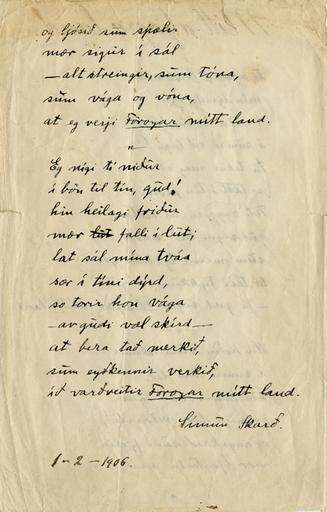 og ljósið sum spælir
mær sigur í sál
—alt streingir, sum tóna,
sum vága og vóna,
at eg verji Föroyar mítt land.
"
Eg nígi tí niður
í bön til tín, gud!
hin heilagi friður
mær lut falli í lut;
lat sál mína tváa
sær í tíni dýrd,
so torir hon vága
—av gudi væl skírd—
at bera tað merkið,
sum eyðkennir verkið,
ið varðveitir Föroyar mítt land.
Símun Skarð.
1-2-1906.